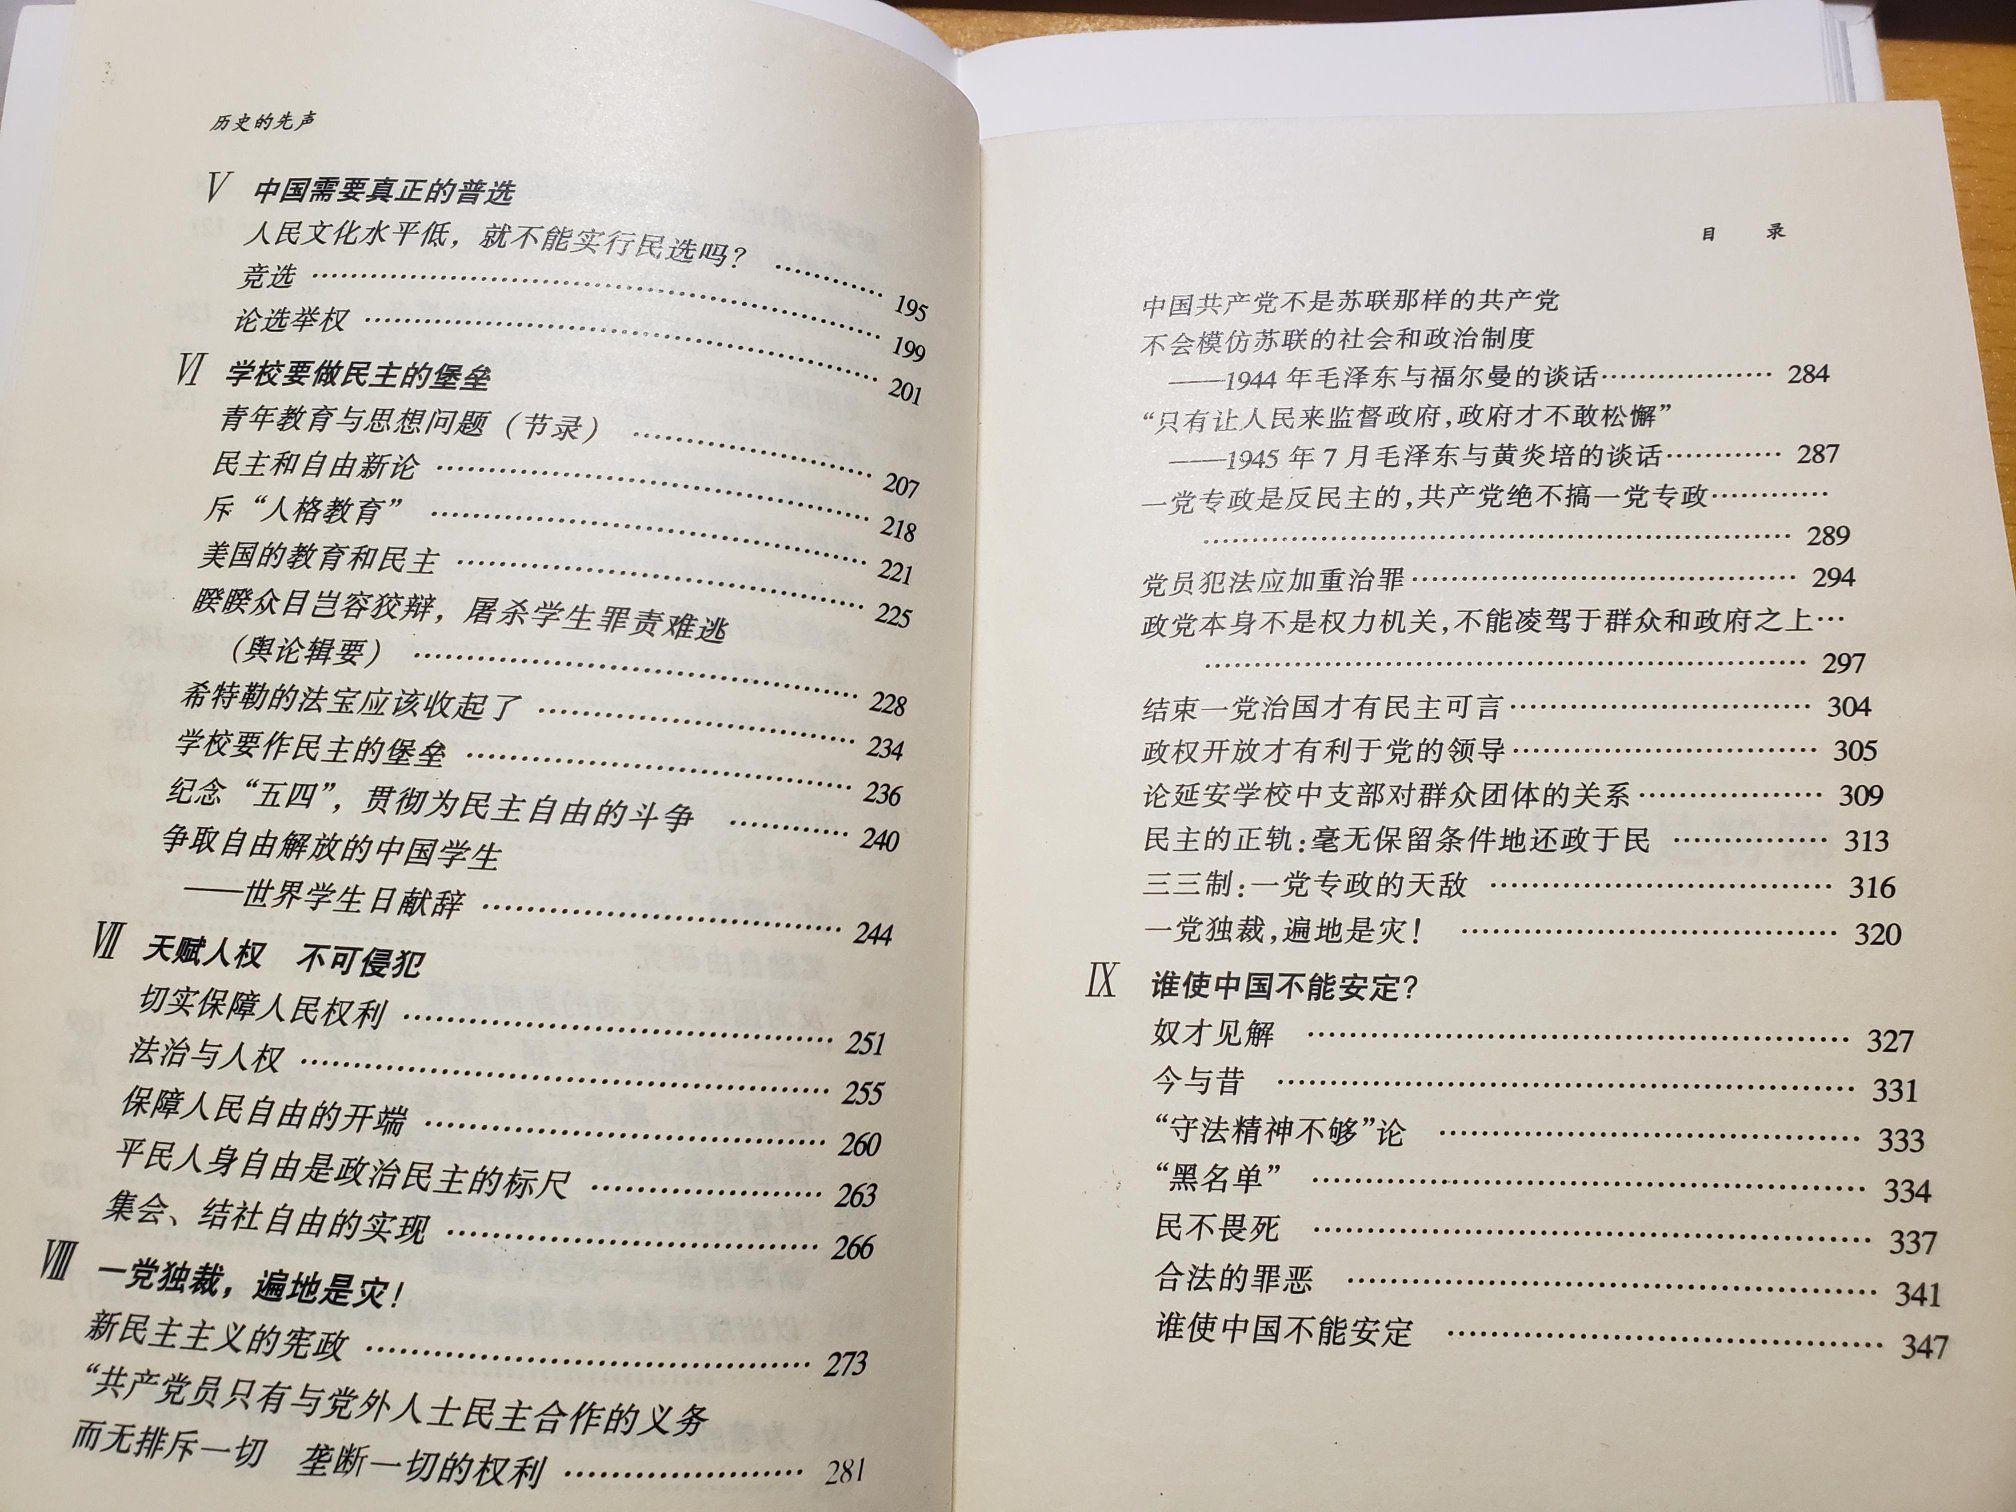 历史的先声
Ⅴ 中国需要真正的普选
人民文化水平低，就不能实行民选吗？ ………… 195
竞选 ………… 199
论选举权 ………… 201
Ⅵ 学校要做民主的堡垒
青年教育与思想问题（节录） ………… 207
民主和自由新论 ………… 218
斥“人格教育” ………… 221
美国的教育和民主 ………… 225
睽睽众目岂容狡辩，屠杀学生罪责难逃
（舆论辑要） ………… 228
希特勒的法宝应该收起了 ………… 234
学校要作民主的堡垒 ………… 236
纪念“五四”，贯彻为民主自由的斗争 ………… 240
争取自由解放的中国学生
——世界学生日献辞 ………… 244
Ⅶ 天赋人权　不可侵犯
切实保障人民权利 ………… 251
法治与人权 ………… 255
保障人民自由的开端 ………… 260
平民人身自由是政治民主的标尺 ………… 263
集会、结社自由的实现 ………… 266
Ⅷ 一党独裁，遍地是灾！
新民主主义的宪政 ………… 273
“共产党员只有与党外人士民主合作的义务
而无排斥一切　垄断一切的权利 ………… 281
目　录
中国共产党不是苏联那样的共产党
不会模仿苏联的社会和政治制度
——1944 年毛泽东与福尔曼的谈话………… 284
“只有让人民来监督政府，政府才不敢松懈”
——1945 年 7 月毛泽东与黄炎培的谈话………… 287
一党专政是反民主的，共产党绝不搞一党专政…………
………… 289
党员犯法应加重治罪………… 294
政党本身不是权力机关，不能凌驾于群众和政府之上…
………… 297
结束一党治国才有民主可言………… 304
政权开放才有利于党的领导………… 305
论延安学校中支部对群众团体的关系………… 309
民主的正轨：毫无保留条件地还政于民 ………… 313
三三制：一党专政的天敌 ………… 316
一党独裁，遍地是灾！ ………… 320
Ⅸ 谁使中国不能安定？
奴才见解 ………… 327
今与昔 ………… 331
“守法精神不够”论 ………… 333
“黑名单” ………… 334
民不畏死 ………… 337
合法的罪恶 ………… 341
谁使中国不能安定 ………… 347